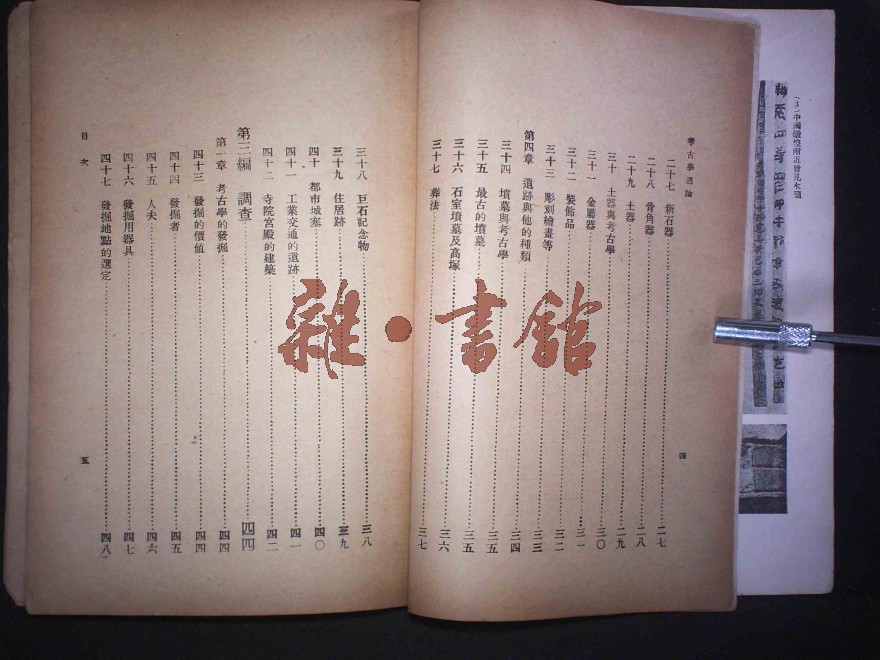 中國燉煌附近發見木簡
考古學通論
四
二十七 新石器 二七
二十八 骨角器 二八
二十九 土器 二九
三十 土器與考古學 三〇
三十一 金屬器 三一
三十二 裝飾品 三二
三十三 彫刻繪畫等 三三
第四章 遺跡與他的種類 三四
三十四 墳墓與考古學 三五
三十五 最古的墳墓 三五
三十六 石室墳墓及高塚 三六
三十七 葬法 三七
三十八 巨石紀念物 三八
三十九 住居跡 三九
四十 都市城塞 四〇
四十一 工業交通的遺跡 四一
四十二 寺院宮殿的建築 四二
第三編 調查 四四
第一章 考古學的發掘 四四
四十三 發掘的價值 四四
四十四 發掘者 四五
四十五 人夫 四六
四十六 發掘用器具 四七
四十七 發掘地點的選定 四八
目次
五
雜·書館